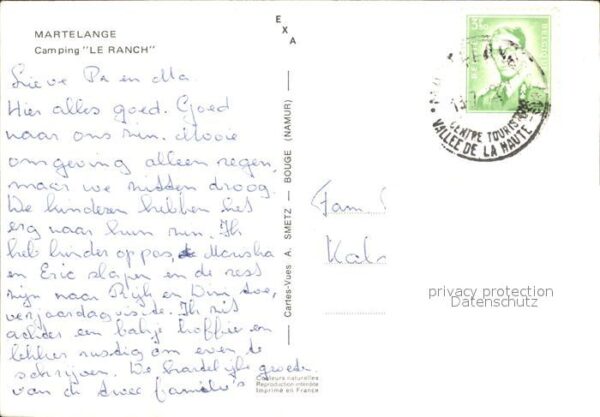 MARTELANGE
Camping "LE RANCH"
EXA
Lieve Pa en Ma.
Hier alles goed. Goed
naar ons zin. Mooie
omgeving alleen regen,
maar we zitten droog.
De kinderen hebben het
erg naar hun zin. Ik
heb kinder oppas, Mariska
en Eric slapen en de rest
zijn naar Rijk en Dini toe,
verjaardagvisite. Ik zit
achter een bakje koffie en
lekker rustig om even te
schrijven. De hartelijke groeten
van de twee familie's
Cartes-Vues A. SMETZ — BOUGE (NAMUR)
Couleurs naturelles
Reproduction interdite
Imprimé en France
Fam
Kals
BELGIE
BELGIQUE
CENTRE TOURISTIQUE
VALLEE DE LA HAUTE
privacy protection
Datenschutz